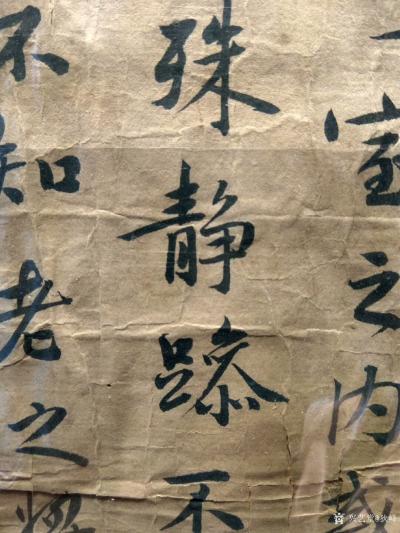 一室之内或
殊静躁不
不知老之將